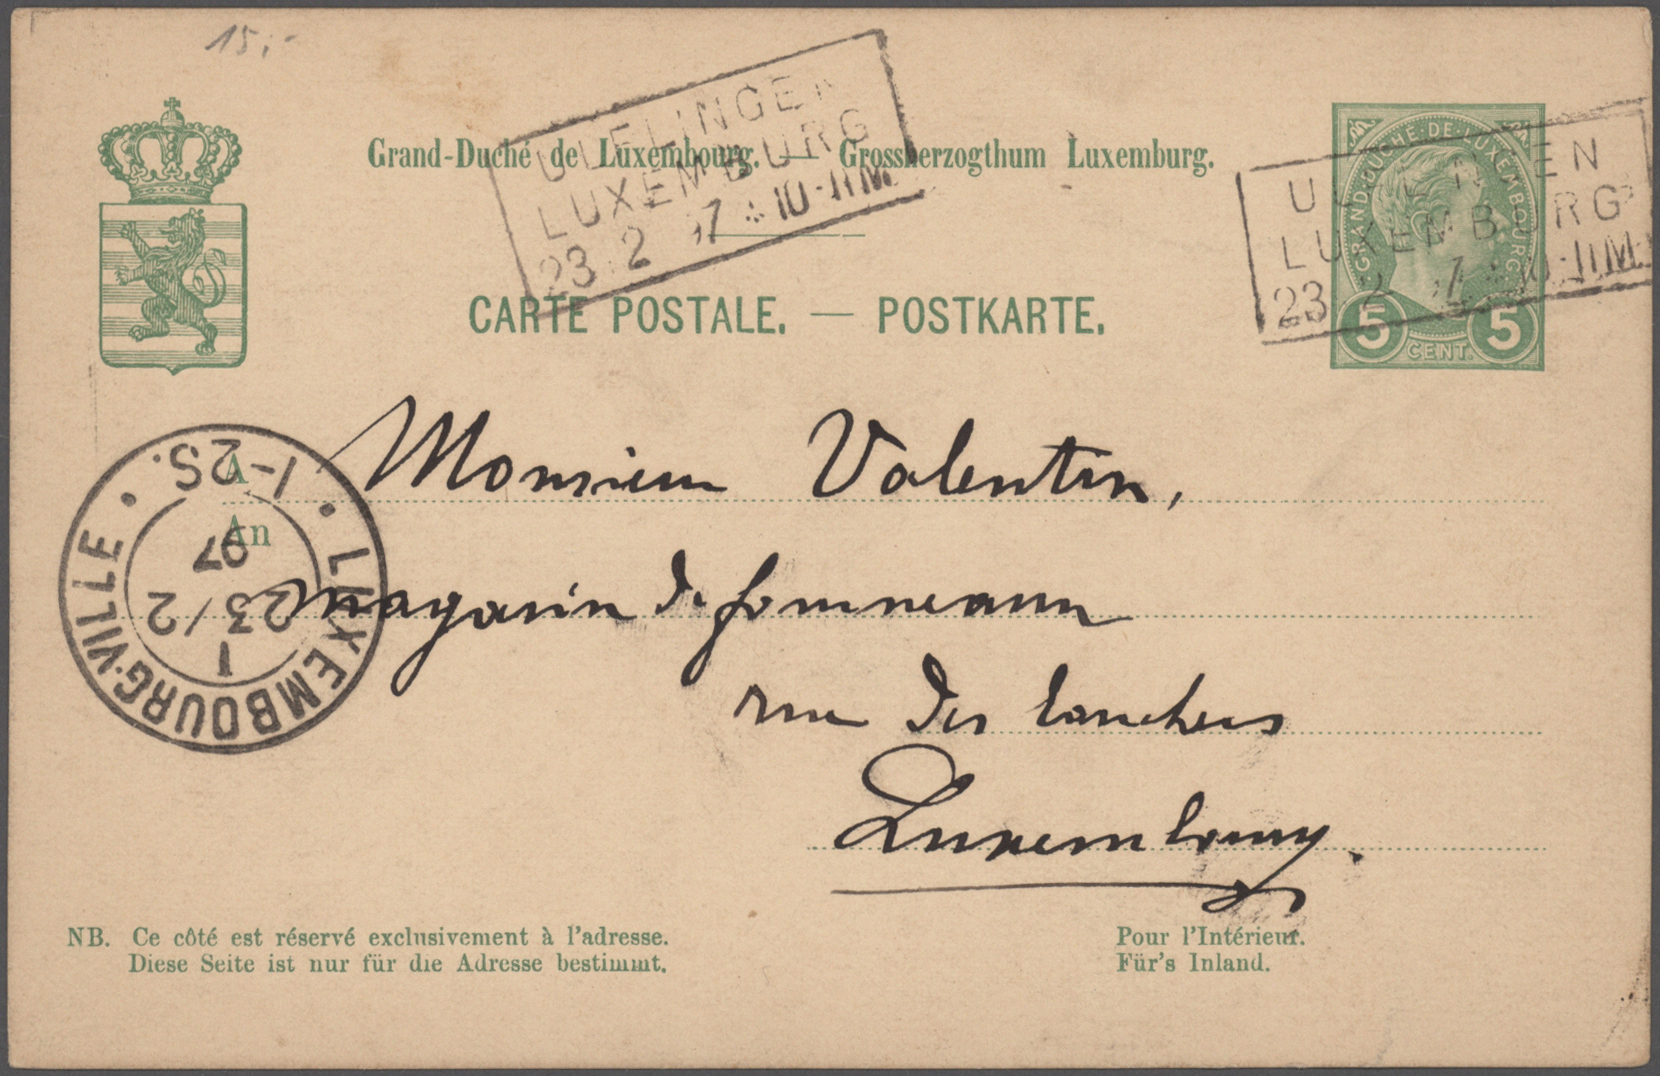 15,-
ULFLINGEN
LUXEMBURG
23 2 97 10-11M
Grand-Duché de Luxembourg. — Grossherzogthum Luxemburg.
GRAND-DUCHÉ-DE-LUXEMBOURG
5 CENT. 5
ULFLINGEN
LUXEMBURG
23 2 97 10-11M
CARTE POSTALE. — POSTKARTE.
A Monsieur Valentin,
An
magasin de fourneaux
rue des
Luxembourg.
LUXEMBOURG-VILLE
1
23/2
97
1-2S.
NB. Ce côté est réservé exclusivement à l'adresse.
Diese Seite ist nur für die Adresse bestimmt.
Pour l'Intérieur.
Für's Inland.